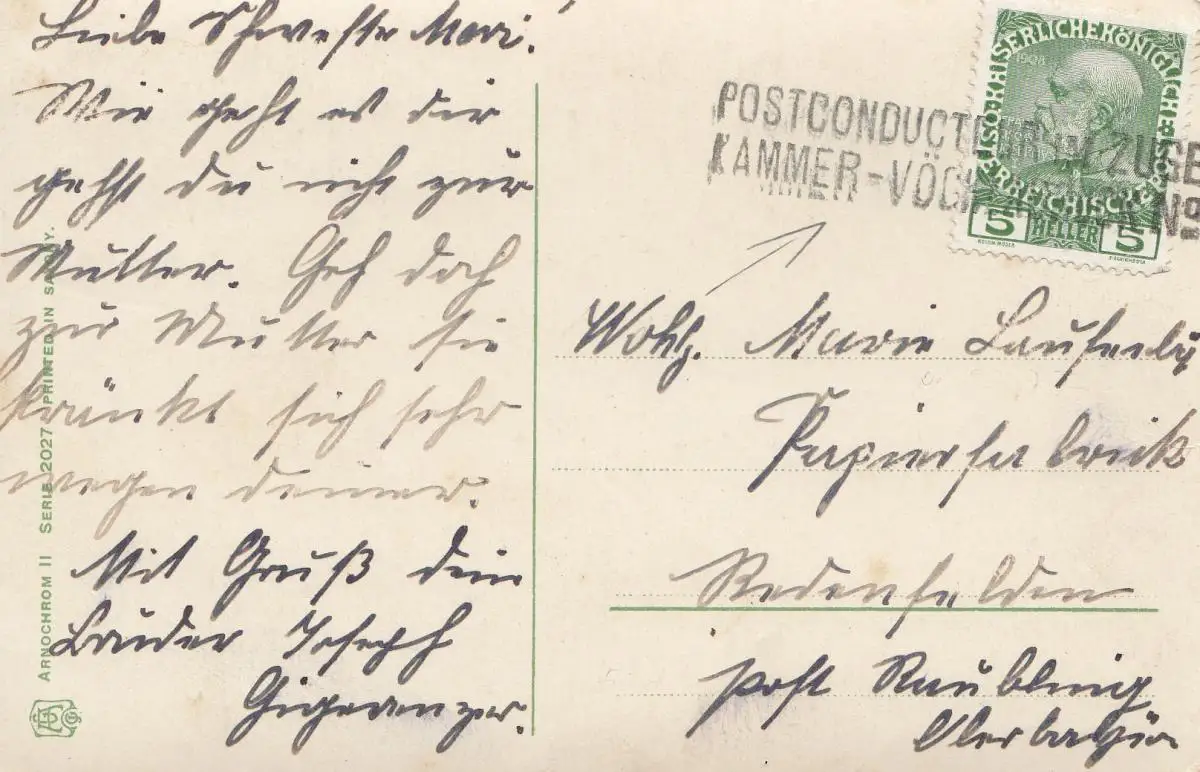 Liebe Schwester Mari.
Wie geht es dir
gehst du nicht zur
Mutter. Geh doch
zur Mutter sie
kränkt sich sehr
wegen deiner.
Mit Gruß dein
Bruder Joseph
ARNOCHROM II SERIE 2027 PRINTED IN SAXONY.
POSTCONDUCTEUR IM ZUGE
KAMMER-VÖCK No
OSTERREICHISCHE POST KAISERLICHE KÖNIGLICHE
1908
5 HELLER 5
Wohlg. Marie
Papierfabrick
Redenfelden
post Raubling
Oberbayern